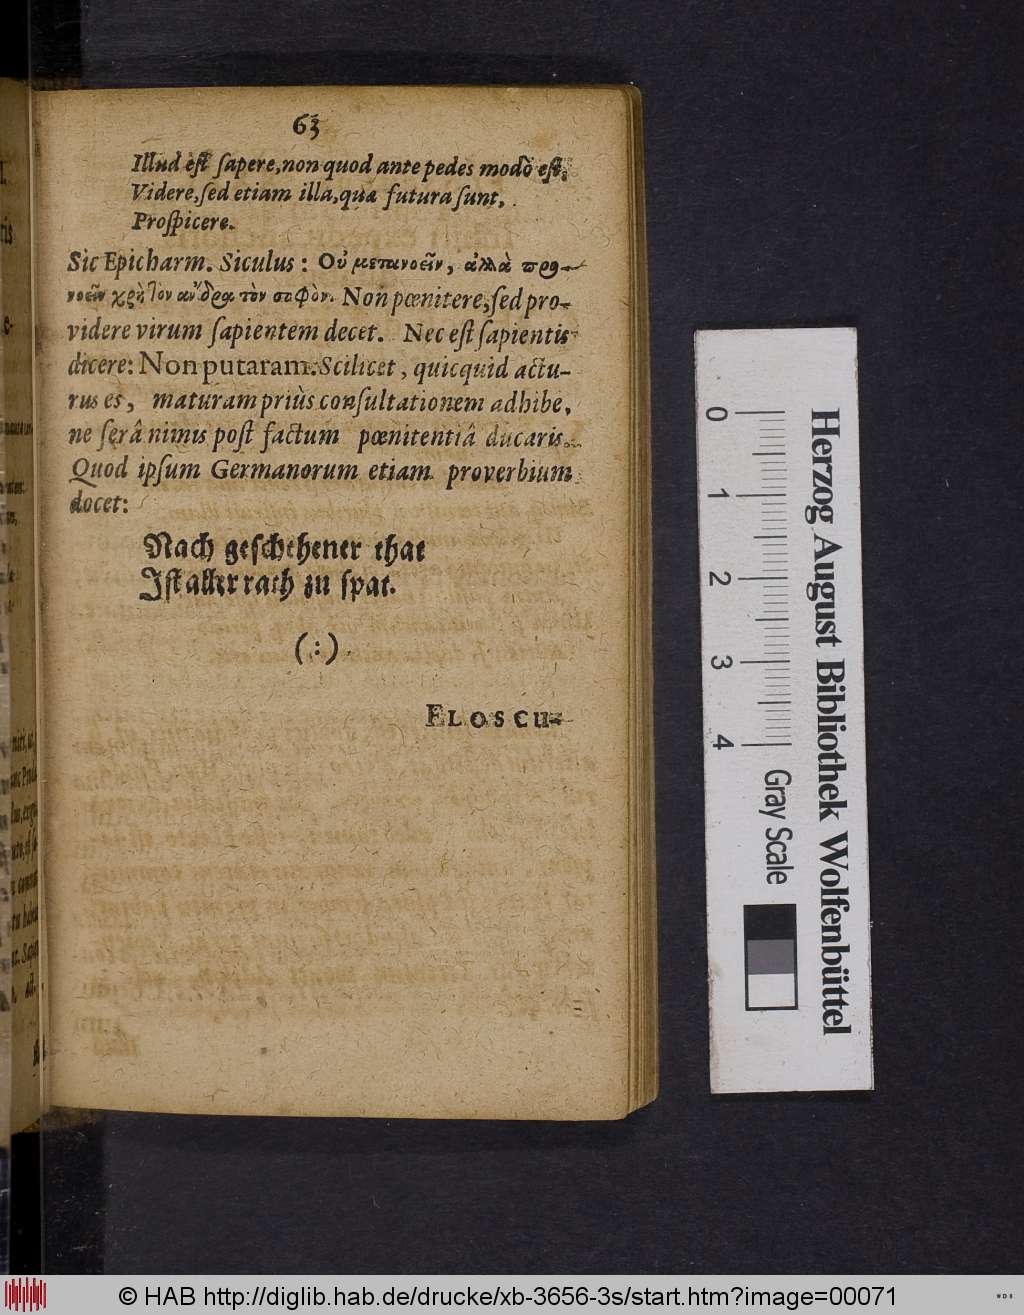 63
Illud eſt ſapere, non quod ante pedes modò eſt,
Videre, ſed etiam illa, quæ futura ſunt,
Proſpicere.
Sic Epicharm. Siculus: Οὐ μετανοεῖν, ἀλλὰ προ-
νοεῖν χρὴ τὸν ἄνδρα τὸν σοφὸν. Non pœnitere, ſed pro-
videre virum ſapientem decet. Nec eſt ſapientis
dicere: Non putaram. Scilicet, quicquid actu-
rus es, maturam priùs conſultationem adhibe,
ne ſerâ nimis poſt factum pœnitentiâ ducaris.
Quod ipſum Germanorum etiam proverbium
docet:
Nach geſchehener that
Iſt aller rath zu ſpat.
(:)
FLOSCU-
Herzog August Bibliothek Wolfenbüttel
0 1 2 3 4
Gray Scale
© HAB http://diglib.hab.de/drucke/xb-3656-3s/start.htm?image=00071